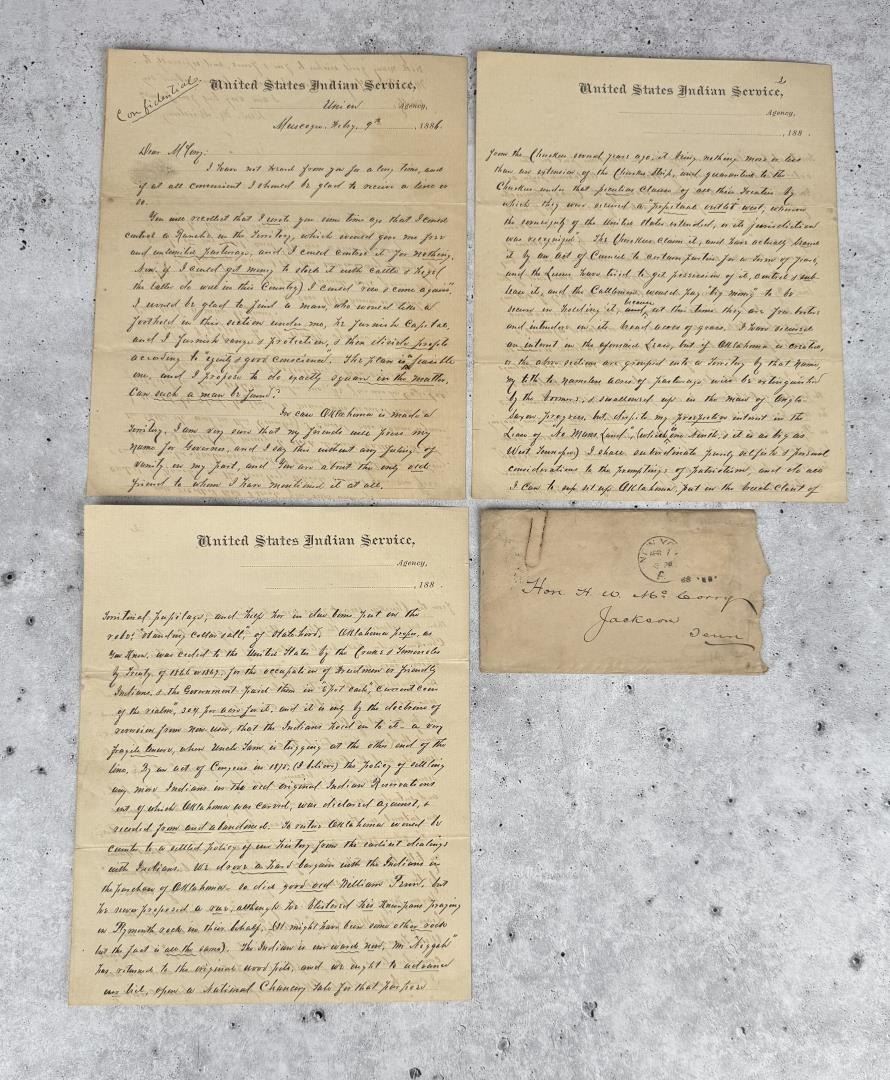 Confidential.
United States Indian Service,
Union Agency,
Muscogee, Feby. 9th, 1886
Dear McCorry:
I have not heard from you for a long time, and
if at all convenient I should be glad to receive a line or
so.
You will recollect that I wrote you some time ago that I could
control a Ranche in the Territory, which would give me free
and unlimited pasturage, and I could control it for nothing.
Now if I could get money to stock it with cattle & hogs (
the latter do well in this Country) I could "run & come again".
I would be glad to find a man, who would like a
foothold in this section under me, he furnish Capital,
and I furnish range & protection, & then divide profits
according to "equity & good conscience". The plan is a feasible
one, and I propose to do exactly square in the matter.
Can such a man be found?
In case Oklahoma is made a
Territory, I am very sure that my friends will press my
name for Governor, and I say this without any feeling of
vanity in my part, and you are about the only old
friend to whom I have mentioned it at all.
2
United States Indian Service,
Agency,
, 188 .
from the Cherokees several years ago, it being nothing more or less
than an extension of the Cherokee Strip, and guaranteed to the
Cherokees under that peculiar clause of all their Treaties by
which they were secured a "perpetual outlet" west, wherever
the sovereignty of the United States extended, or its jurisdiction
was recognized. The Cherokees claim it, and have actually leased
it by an act of Council to certain parties for a term of years,
and the Lessees have tried to get possession of it, control & sub-
lease it, and the Cattlemen would pay "big money" to be
secure in holding it, because at this time they are free
and intruders in its broad acres of grass. I have secured
an interest in the aforesaid Lease, but if Oklahoma is created,
or the above sections are grouped into a Territory by that name,
my title to nameless acres of pasturage will be extinguished
by the boomers, & swallowed up in the maw of Anglo-
saxon progress, but despite my prospective interest in the
Lease of "No Mans Land" (which one Ninth, & it is as big as
West Tennessee) I shall subordinate purely selfish & personal
considerations to the promptings of patriotism, and do all
I can to set up Oklahoma, put in the of
United States Indian Service,
Agency,
, 188 .
Territorial pupilage, and help her in due time put on the
robes "standing collar & all", of statehood. Oklahoma proper, as
you know, was ceded to the United States by the Creeks & Seminoles
by Treaty of 1866 or 1867, for the occupation of Freedmen or friendly
Indians, & the Government paid them in "spot cash", "current coin
of the realm", 30¢ per acre for it, and it is only by the doctrine of
remission from non user, that the Indians hold on to it - a very
fragile tenure, when Uncle Sam is tugging at the other end of the
line. By an act of Congress in 1878, (I believe) the policy of settling
any more Indians in the old original Indian Reservations
out of which Oklahoma was carved, was declared against, &
receded from and abandoned. To retire Oklahoma would be
counter to a settled policy of our history from the earliest dealings
with Indians. We drove a hard bargain with the Indians in
the purchase of Oklahoma - so did good old William Penn, but
he never proposed a rue, although he blistered his praying
on Plymouth rock in their behalf. (It might have been some other rock
but the fact is all the same). The Indian is our wards now, Mr. "Niggah"
has returned to the original wood pile, and we ought to advance
our bid, open a National Chancery sale for that purpose
NEW YO
APR 1
Hon H. W. McCorry
Jackson
Tenn